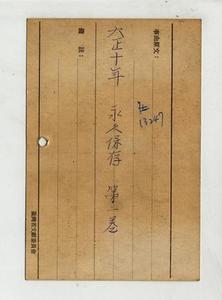 事由原文：
北
13247
大正十年 永久保存 第一巻
備註：
臺灣省文獻委員會